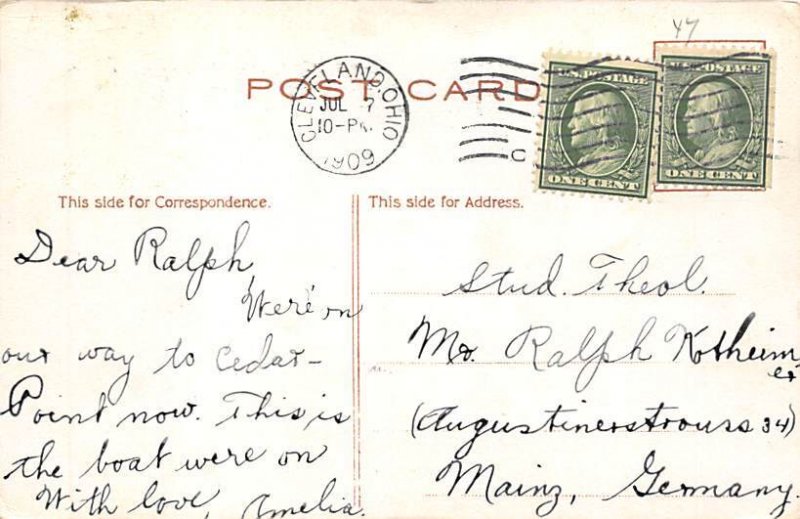 47
POST CARD
CLEVELAND, OHIO
JUL 7
10-PM
1909
C
U.S. POSTAGE
ONE CENT
U.S. POSTAGE
ONE CENT
This side for Correspondence.
Dear Ralph,
We're on
our way to Cedar-
Point now. This is
the boat were on
With love, Amelia.
This side for Address.
Stud. Theol.
Mr. Ralph Kotheim
er
(Augustinerstrouss 34)
Mainz, Germany.